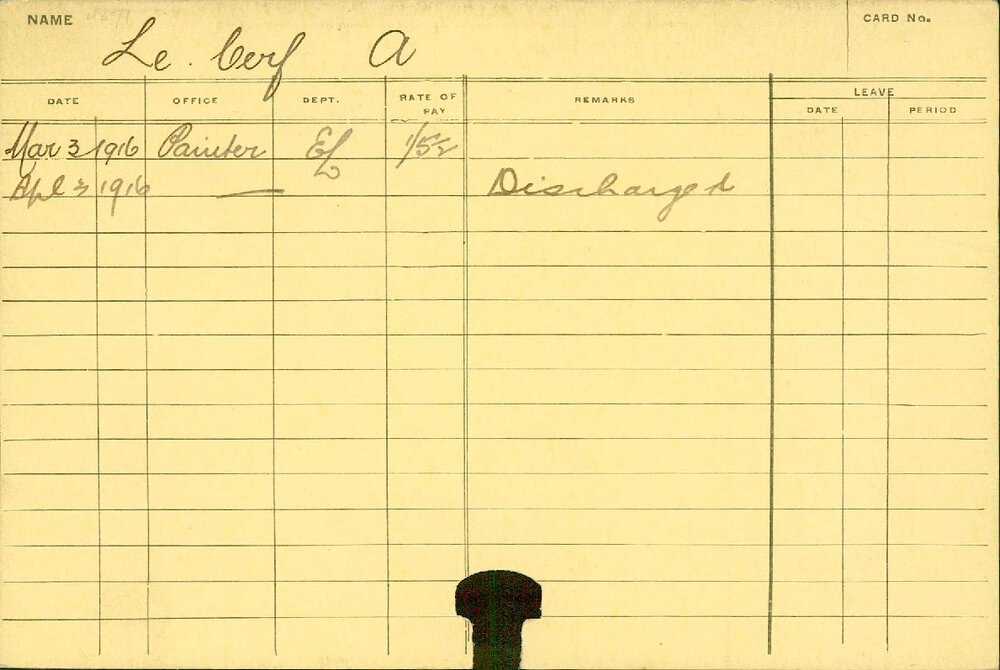 NAME
CARD No.
Le. Cerf A
DATE OFFICE DEPT. RATE OF PAY REMARKS LEAVE
DATE PERIOD
Mar 3 1916 Painter EL 1/5½
Apl 3 1916 — Discharged